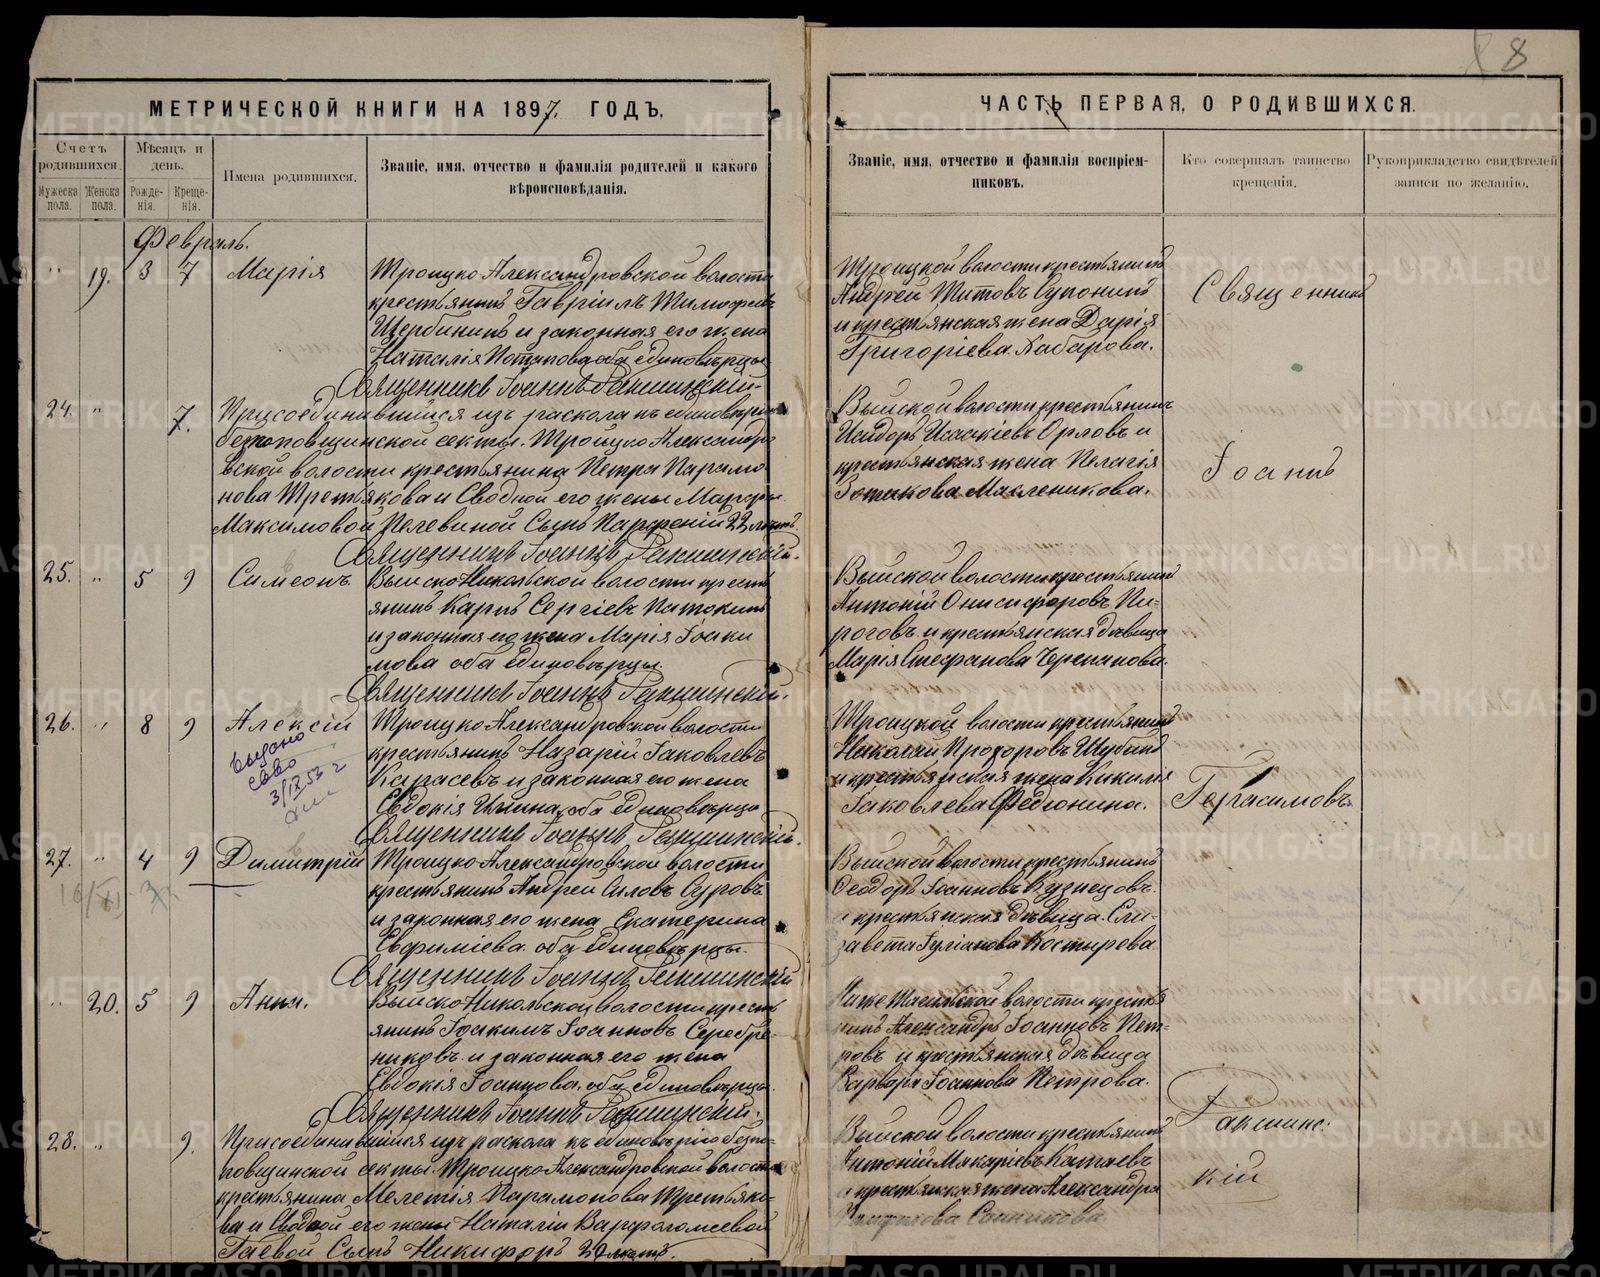 8
МЕТРИЧЕСКОЙ КНИГИ НА 1897. ГОДЪ,
Счетъ родившихся.
Мужеска пола.
Женска пола.
Мѣсяцъ и день.
Рожденія.
Крещенія.
Имена родившихся.
Званіе, имя, отчество и фамилія родителей и какого
вѣроисповѣданія.
Февраль.
19. 3 7 Марія
Троицко Александровской волости
крестьянинъ Гавріилъ Тимофеевъ
Щербининъ и законная его жена
Наталія Потапова оба единовѣрцы
Священникъ Іоаннъ
24. 7.
Присоединившийся изъ раскола къ единовѣрію
безпоповщинской секты. Троицко Александро
вской волости крестьянина Петра Парамо
нова Третьякова и Сводной его жены Марфы
Максимовой Пелевиной Сынъ Парфеній 22 лѣтъ.
Священникъ Іоаннъ
25. 5 9 Симеонъ.
Выйско Никольской волости кресть
янинъ Карпъ Сергіевъ Патокинъ
и законная его жена Марія Іоаки
мова оба единовѣрцы.
Священникъ Іоаннъ
26. 8 9 Алексій
выдано
св-во
3/IX 53 г
Троицко Александровской волости
крестьянинъ Назарій Іаковлевъ
Карасевъ и законная его жена
Евдокія Ильина, оба единовѣрцы
Священникъ Іоаннъ
27. 4 9 Димитрій
Троицко-Александровской волости
крестьянинъ Андрей Силовъ Суровъ
и законная его жена Екатерина
Евфиміева. оба единовѣрцы.
Священникъ Іоаннъ
20. 5 9 Анна.
Выйско Никольской волости кресть
янинъ Іоакимъ Іоанновъ Серебре-
никовъ и законная его жена
Евдокія Іоаннова. оба единовѣрцы
Священникъ Іоаннъ
28. 9.
Присоединившийся изъ раскола къ единовѣрію безпо-
повщинской секты. Троицко Александровской волости
крестьянина Мелетія Парамонова Третьяко-
ва и Сводной его жены Наталіи Варфоломеевой
Гаевой Сынъ Никифоръ 20 лѣтъ.
ЧАСТЬ ПЕРВАЯ, О РОДИВШИХСЯ.
Званіе, имя, отчество и фамилія воспріем-
никовъ.
Кто совершалъ таинство
крещенія.
Рукоприкладство свидѣтелей
записи по желанію.
Троицкой волости крестьянинъ
Андрей Титовъ Супонинъ
и крестьянская жена Дарія
Григоріева Хабарова.
Священникъ
Выйской волости крестьянинъ
Исидоръ Исаакіевъ Орловъ и
крестьянская жена Пелагія
Зотикова Масленикова.
Іоаннъ
Выйской волости крестьянинъ
Антоній Онисифоровъ Пи-
роговъ и крестьянская дѣвица
Марія Стефанова Черепанова.
Троицкой волости крестьянинъ
Николай Прохоровъ Шубинъ
и крестьянская жена Кикилія
Іаковлева Федюнина.
Герасимовъ
Выйской волости крестьянинъ
Феодоръ Іоанновъ Кузнецовъ
и крестьянская дѣвица. Ели-
завета Іуліанова Костырева
Ниже Тагильской волости кресть
янинъ Александръ Іоанновъ Пет-
ровъ и крестьянская дѣвица
Варвара Іоаннова Петрова.
Выйской волости крестьянинъ
Антоній Макаріевъ Катаевъ
и крестьянская жена Александра
Санникова
кій
METRIKI.GASO-URAL.RU